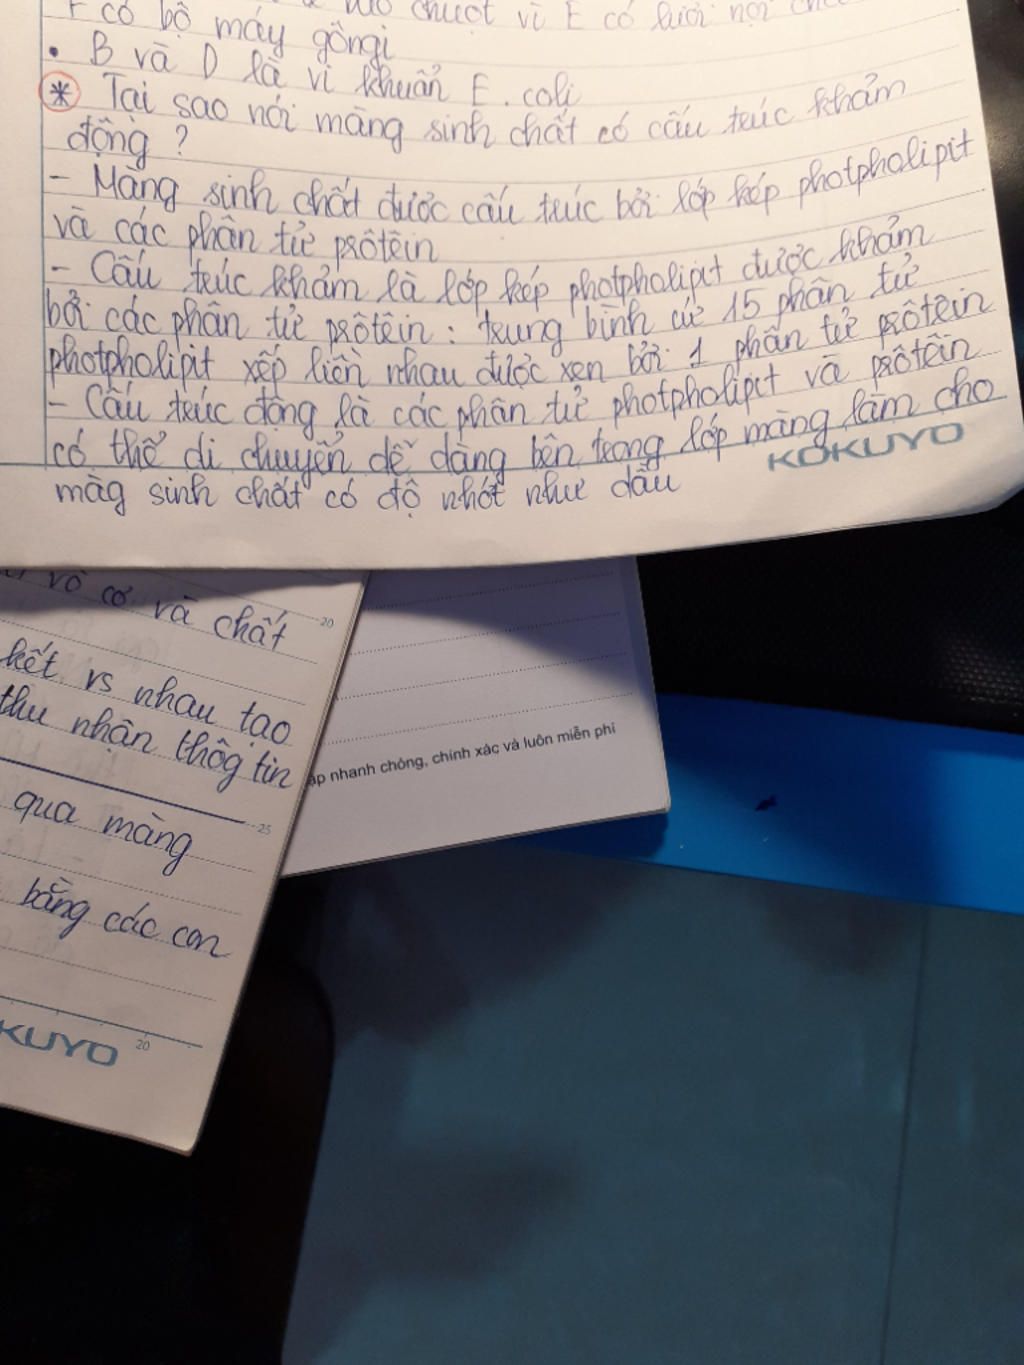 F có bộ máy gôngi
• B và D là vi khuẩn E. coli
* Tại sao nói màng sinh chất có cấu trúc khảm
động ?
- Màng sinh chất được cấu trúc bởi lớp kép photpholipit
và các phân tử prôtêin
- Cấu trúc khảm là lớp kép photpholipit được khảm
bởi các phân tử prôtêin : trung bình cứ 15 phân tử
photpholipit xếp liền nhau được xen bởi 1 phân tử prôtêin
- Cấu trúc động là các phân tử photpholipit và prôtêin
có thể di chuyển dễ dàng bên trong lớp màng làm cho
màg sinh chất có độ nhớt như dầu
KOKUYO
vô cơ và chất
20
kết vs nhau tạo
thu nhận thôg tin
25
qua màng
bằng các con
KUYO
20
nhanh chóng, chính xác và luôn miễn phí